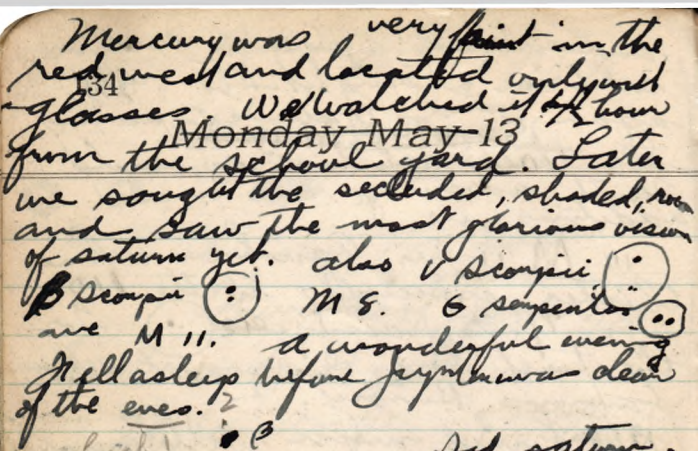 Mercury was very faint in the
red west and located only with
134
glasses. We watched it 1/2 hour
Monday May 13
from the school yard. Later
we sought the secluded, shaded,
and saw the most glorious vision
of saturn yet. also ν scorpii
β scorpii M 8. θ serpentis
are M 11. a wonderful evening
Fell asleep before was clear
of the eves.
β
saturn.